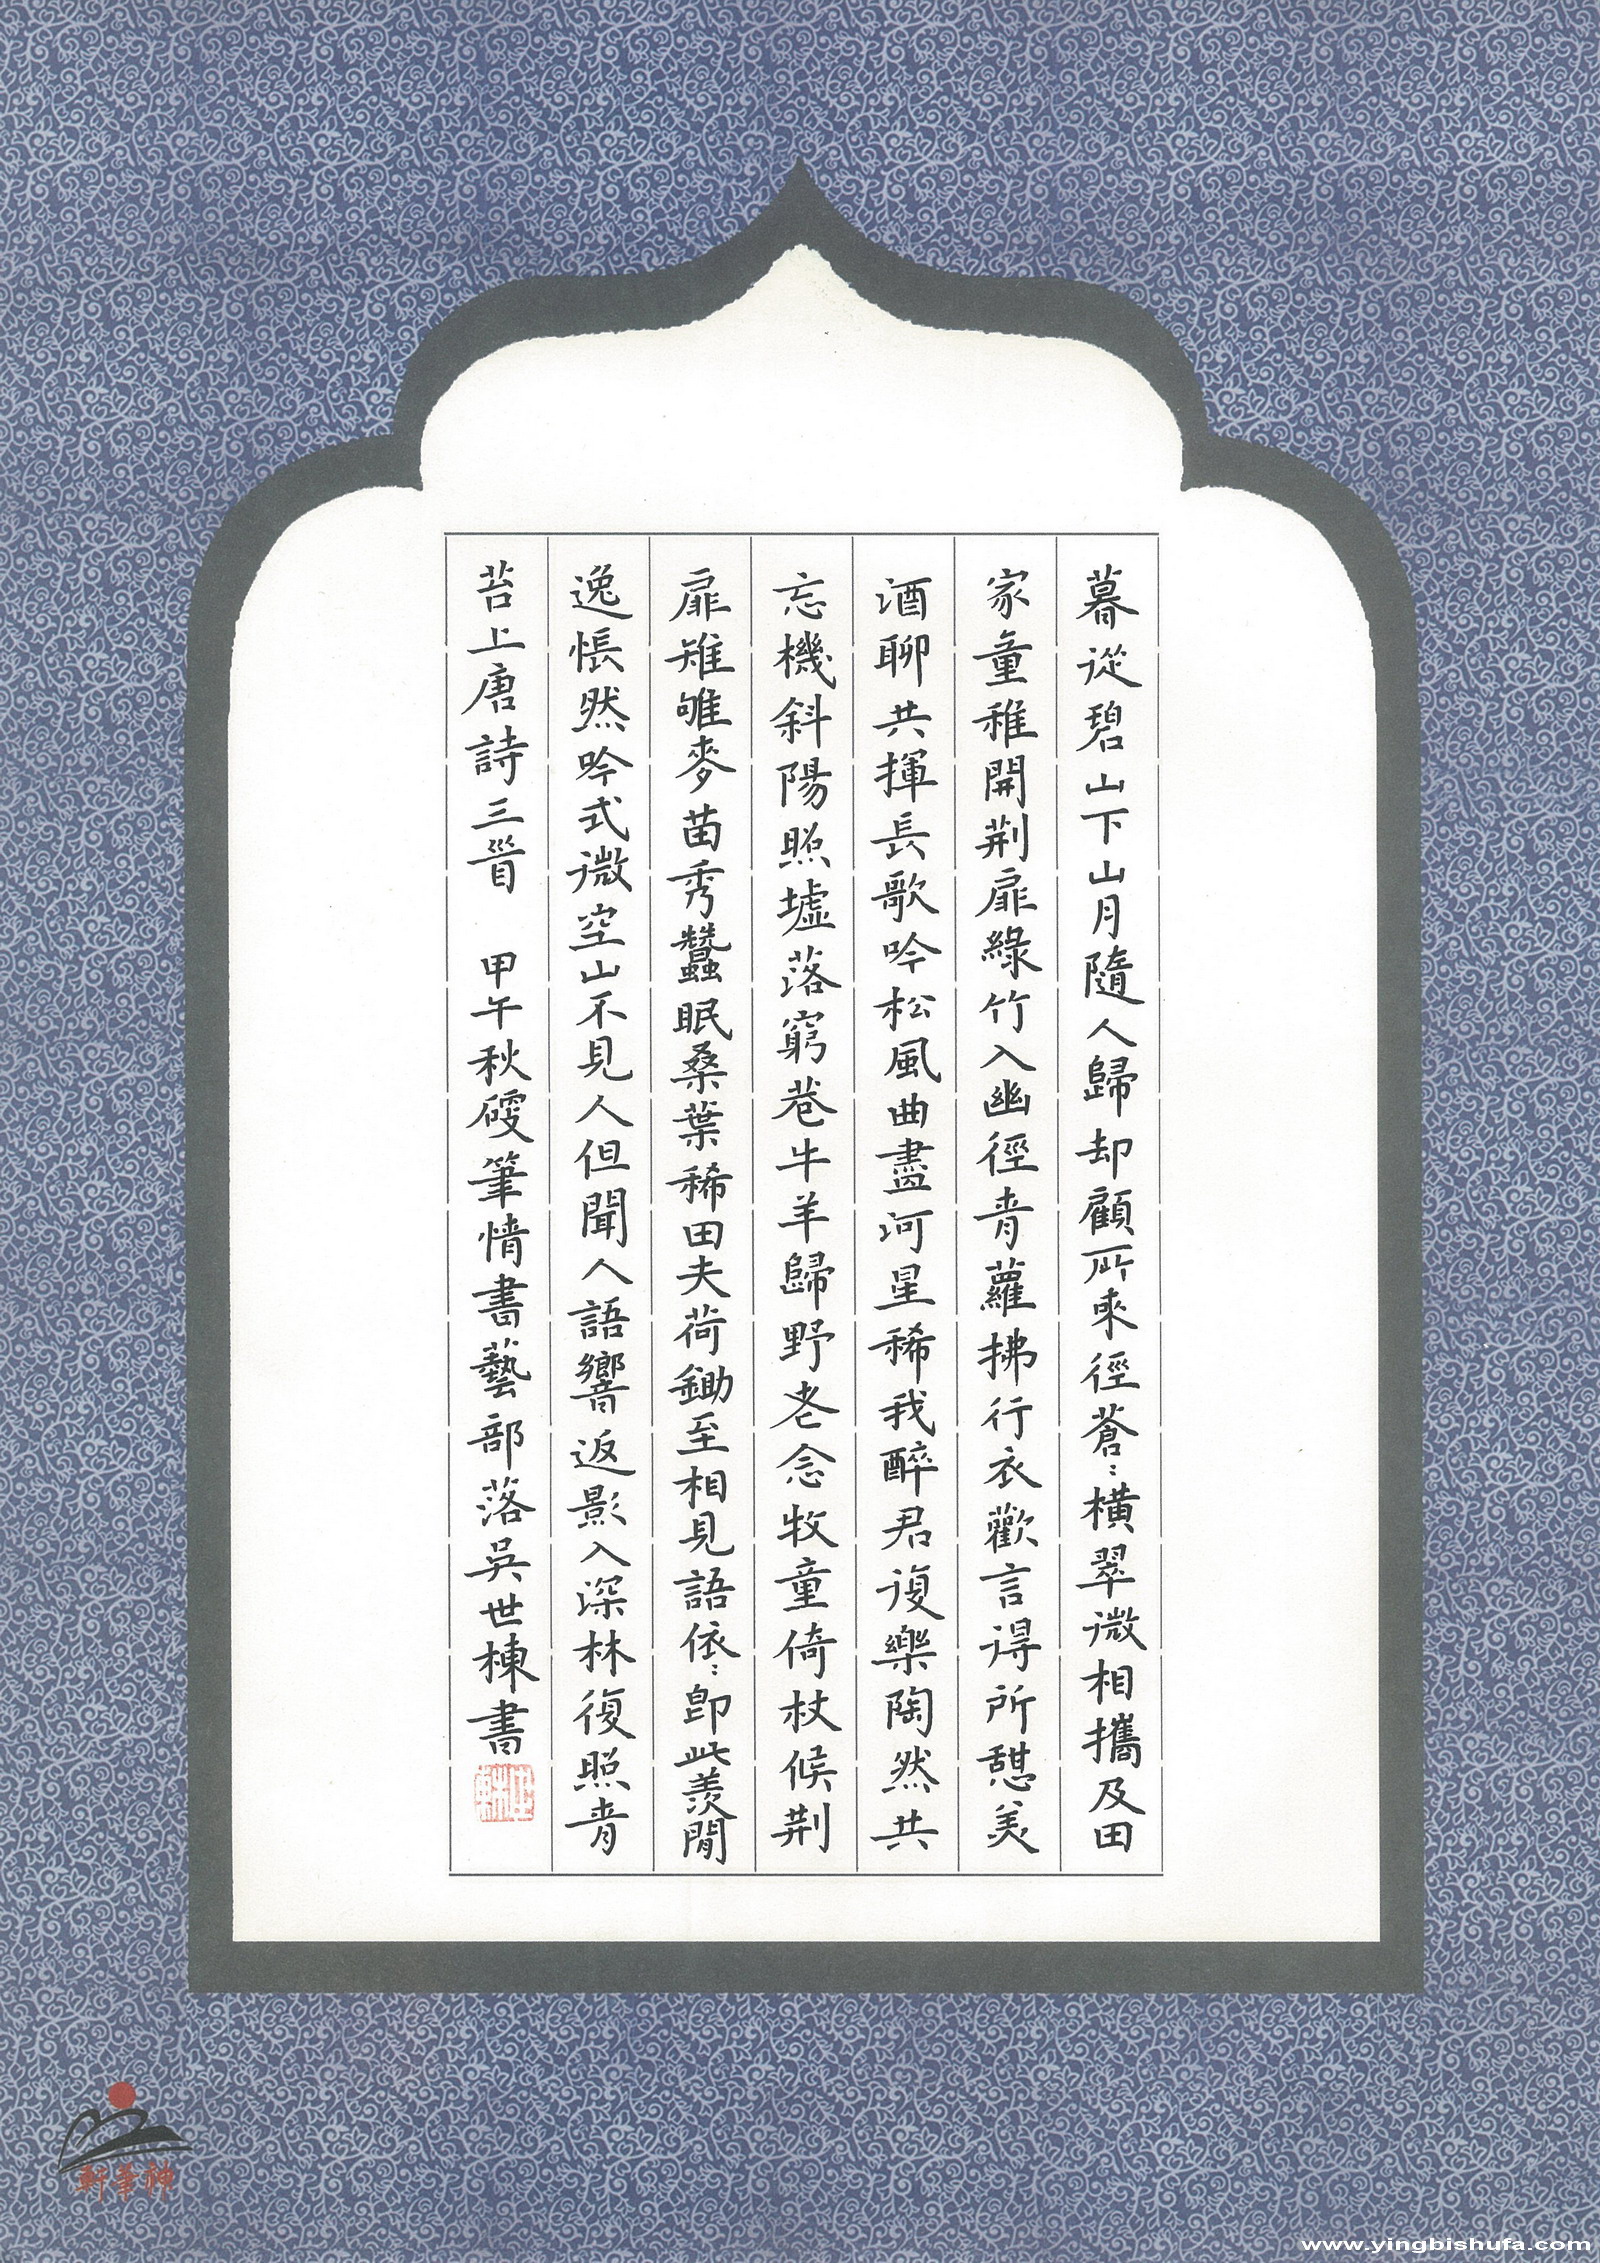 暮從碧山下山月隨人歸却顧所來徑蒼〻橫翠微相攜及田
家童稚開荆扉綠竹入幽徑青蘿拂行衣歡言得所憩美
酒聊共揮長歌吟松風曲盡河星稀我醉君復樂陶然共
忘機斜陽照墟落窮巷牛羊歸野老念牧童倚杖候荆
扉雉雊麥苗秀蠶眠桑葉稀田夫荷鋤至相見語依〻即此羨閒
逸悵然吟式微空山不見人但聞人語響返影入深林復照青
苔上唐詩三首 甲午秋硬筆情書藝部落吳世棟書
神筆軒
www.yingbishufa.com